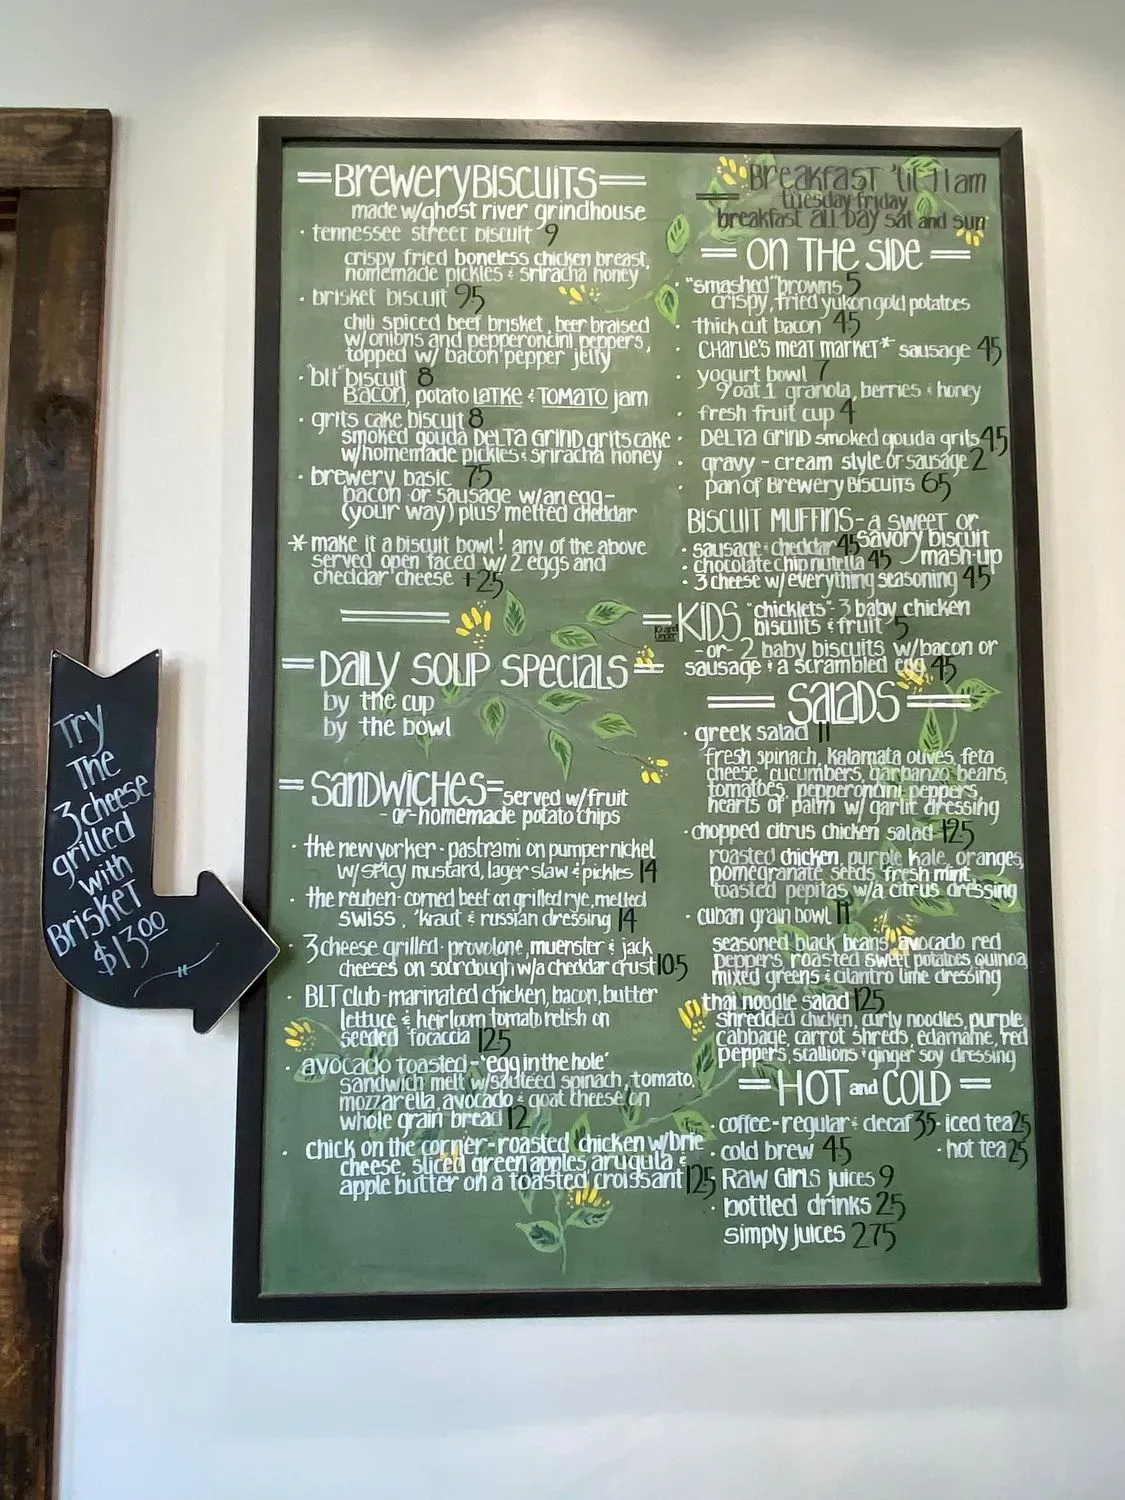 Try
The
3 cheese
grilled
with
Brisket
$13.00
Brewery Biscuits
made w/ghost river grindhouse
· tennessee street biscuit 9
crispy fried boneless chicken breast,
homemade pickles & sriracha honey
· brisket biscuit 95
chili spiced beef brisket, beer braised
w/onions and pepperoncini peppers,
topped w/ bacon pepper jelly
· "blt" biscuit 8
Bacon, potato LATKE & TOMATO jam
· grits cake biscuit 8
smoked gouda DELTA GRIND grits cake
w/homemade pickles & sriracha honey
· brewery basic 75
bacon or sausage w/an egg-
(your way) plus melted cheddar
* make it a biscuit bowl! any of the above
served open faced w/ 2 eggs and
cheddar cheese +25
Daily Soup Specials
by the cup
by the bowl
Sandwiches served w/fruit
-or-homemade potato chips
· the new yorker - pastrami on pumpernickel
w/spicy mustard, lager slaw & pickles 14
· the reuben-corned beef on grilled rye, melted
swiss, 'kraut & russian dressing 14
· 3 cheese grilled - provolone, muenster & jack
cheeses on sourdough w/a cheddar crust 105
· BLT club-marinated chicken, bacon, butter
lettuce & heirloom tomato relish on
seeded focaccia 125
· avocado toasted - 'egg in the hole'
sandwich melt w/sauteed spinach, tomato,
mozzarella, avocado & goat cheese on
whole grain bread 12
· chick on the corner-roasted chicken w/brie
cheese, sliced green apples, arugula &
apple butter on a toasted croissant 125
Breakfast 'til 11am
tuesday friday
breakfast all day sat and sun
On The Side
· "smashed" browns 5
crispy, fried yukon gold potatoes
· thick cut bacon 45
· CHARLIE'S MEAT MARKET* sausage 45
· yogurt bowl 7
9 oat 1 granola, berries & honey
· fresh fruit cup 4
· DELTA GRIND smoked gouda grits 45
· gravy - cream style or sausage 2
· pan of Brewery Biscuits 65
BISCUIT MUFFINS - a sweet or
savory biscuit
mash-up
· sausage & cheddar 45
· chocolate chip nutella 45
· 3 cheese w/everything seasoning 45
10 and
under
KIDS "chicklets"- 3 baby chicken
biscuits & fruit 5
-or- 2 baby biscuits w/bacon or
sausage & a scrambled egg 45
Salads
· greek salad 11
fresh spinach, kalamata olives, feta
cheese, cucumbers, garbanzo beans,
tomatoes, pepperoncini peppers,
hearts of palm w/ garlic dressing
· chopped citrus chicken salad 125
roasted chicken, purple kale, oranges,
pomegranate seeds, fresh mint,
toasted pepitas w/a citrus dressing
· cuban grain bowl 11
seasoned black beans, avocado red
peppers, roasted sweet potatoes quinoa,
mixed greens & cilantro lime dressing
· thai noodle salad 125
shredded chicken, curly noodles, purple
cabbage, carrot shreds, edamame, red
peppers, scallions & ginger soy dressing
HOT and COLD
· coffee-regular & decaf 35 · iced tea 25
· cold brew 45 · hot tea 25
· RAW GIRLS juices 9
· bottled drinks 25
· simply juices 275